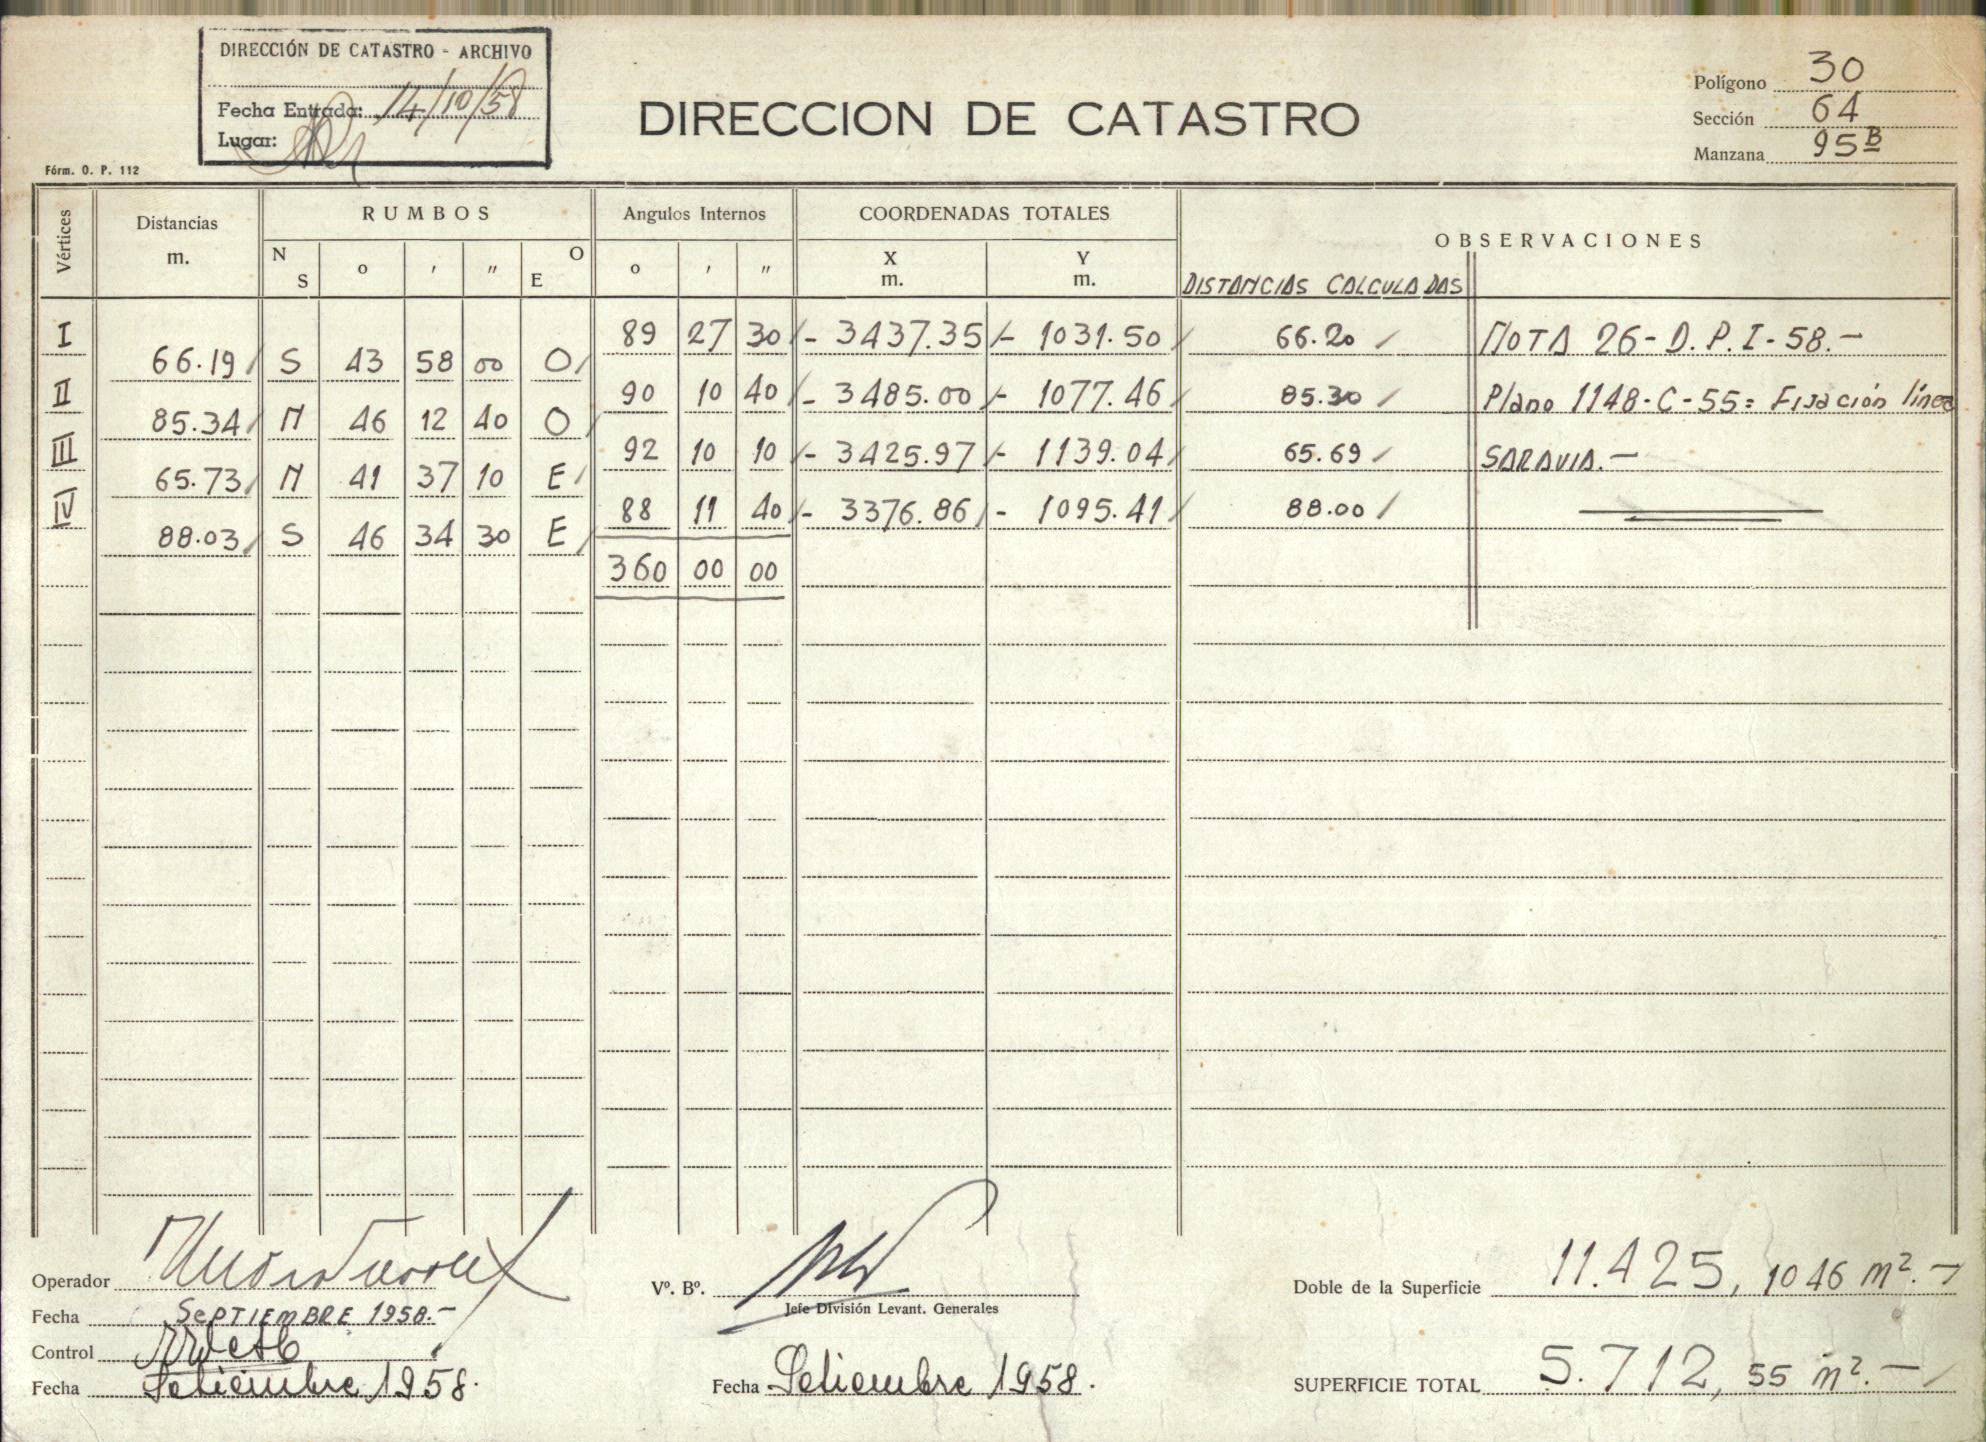 DIRECCIÓN DE CATASTRO - ARCHIVO
Fecha Entrada: 14/10/58
Lugar:
DIRECCION DE CATASTRO
Polígono 30
Sección 64
Manzana 95 B
Fórm. O. P. 112
Vértices Distancias m. RUMBOS Angulos Internos COORDENADAS TOTALES OBSERVACIONES
N S ° ' " O E ° ' " X m. Y m. DISTANCIAS CALCULADAS
I 89 27 30 - 3437.35 - 1031.50 66.20 NOTA 26-D.P.I-58.-
66.19 S 43 58 00 O
II 90 10 40 - 3485.00 - 1077.46 85.30 Plano 1148-C-55: Fijación línea
85.34 N 46 12 40 O
III 92 10 10 - 3425.97 - 1139.04 65.69 SARAVIA.-
65.73 N 41 37 10 E
IV 88 11 40 - 3376.86 - 1095.41 88.00
88.03 S 46 34 30 E
360 00 00
Operador
Fecha SEPTIEMBRE 1958.-
Control
Fecha Setiembre 1958.
Vº. Bº.
Jefe División Levant. Generales
Fecha Setiembre 1958.
Doble de la Superficie 11.425,1046 m².-
SUPERFICIE TOTAL 5.712,55 m².-